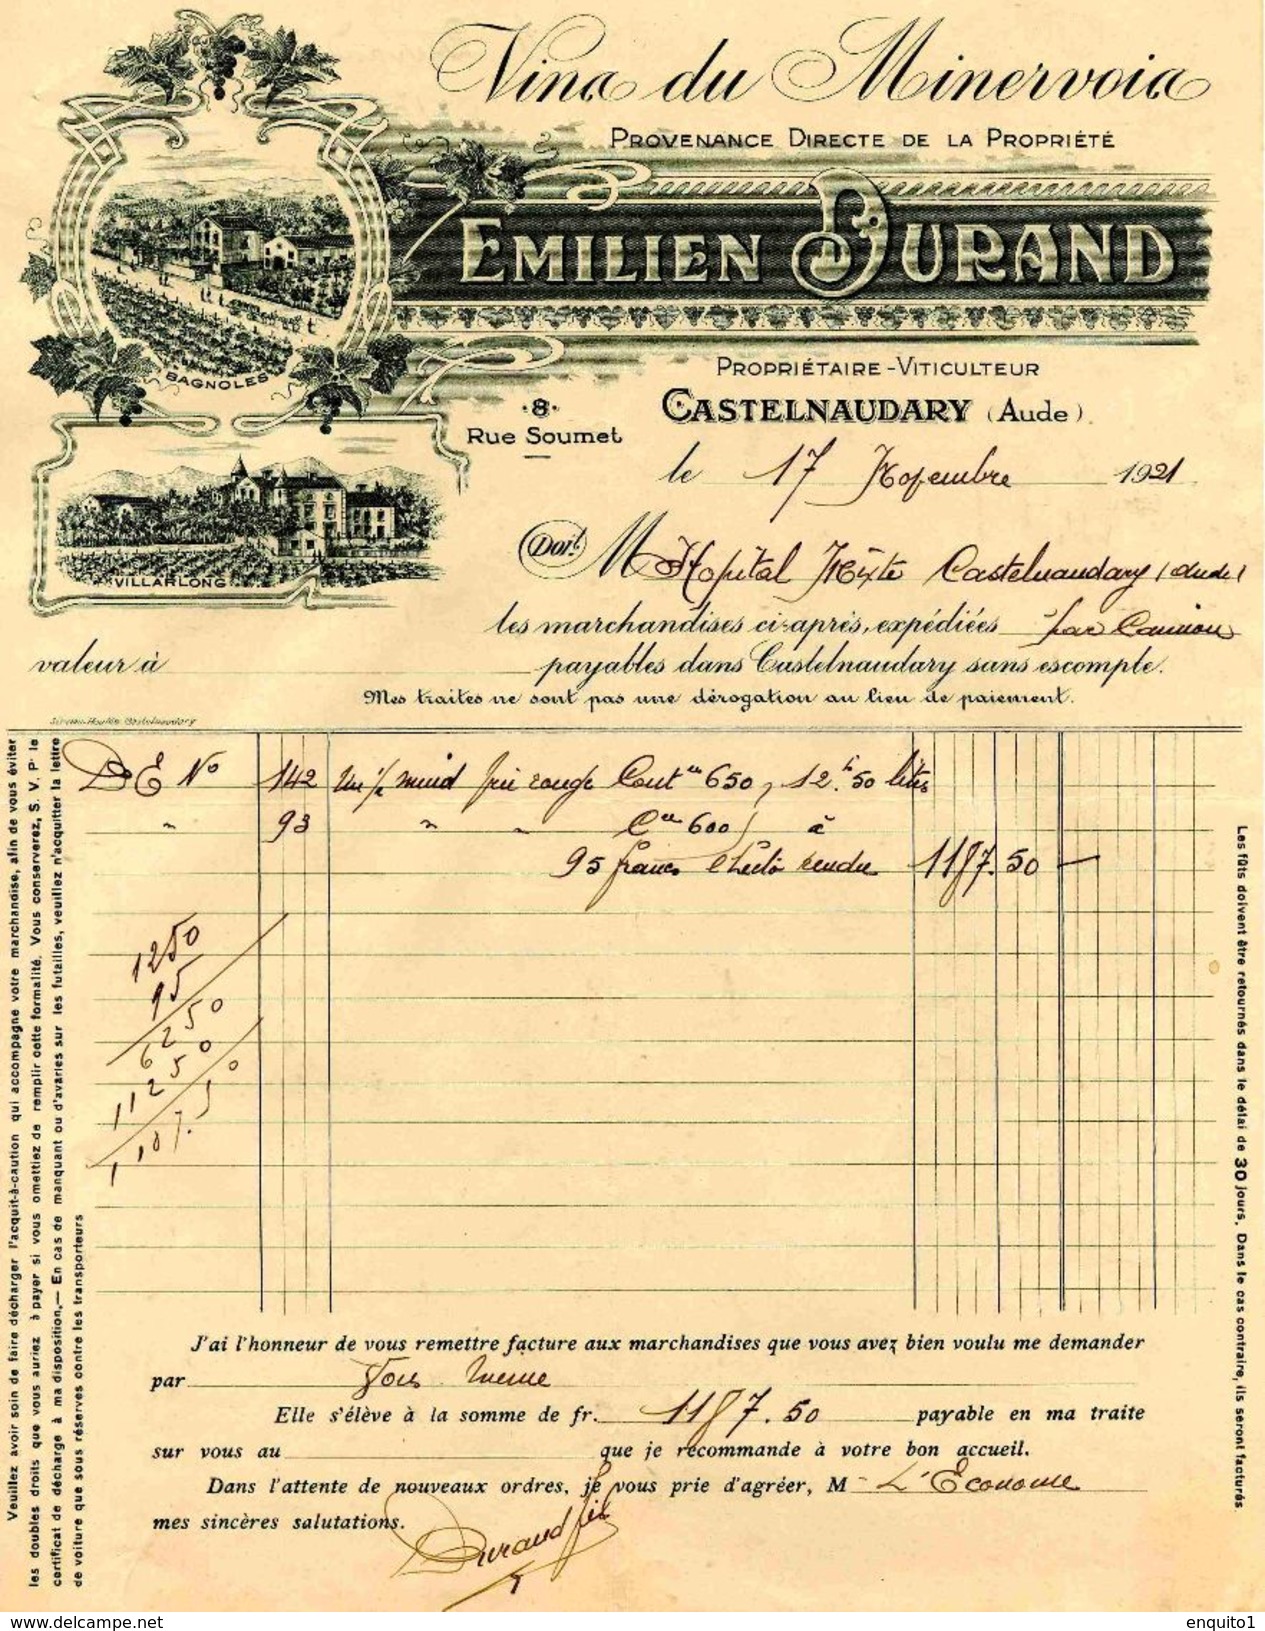 Vins du Minervois
PROVENANCE DIRECTE DE LA PROPRIÉTÉ
EMILIEN DURAND
BAGNOLES
PROPRIÉTAIRE-VITICULTEUR
·8· CASTELNAUDARY (Aude).
Rue Soumet
le 17 Novembre 1921
VILLARLONG
Doit M Hopital Mixte Castelnaudary (Aude)
les marchandises ci-après, expédiées par Camion
valeur à payables dans Castelnaudary sans escompte.
Mes traites ne sont pas une dérogation au lieu de paiement.
Castelnaudary
D E No 142 Un 1/2 muid rouge Cont 650, 12.50 lites
" 93 " " Cce 600 à
95 francs rendu 1187.50
1250
95
6250
1125 0
1187.50
J'ai l'honneur de vous remettre facture aux marchandises que vous avez bien voulu me demander
par Vous meme
Elle s'élève à la somme de fr. 1187.50 payable en ma traite
sur vous au que je recommande à votre bon accueil.
Dans l'attente de nouveaux ordres, je vous prie d'agréer, M L'Econome
mes sincères salutations.
Durand fils
Veuillez avoir soin de faire décharger l'acquit-à-caution qui accompagne votre marchandise, afin de vous éviter
les doubles droits que vous auriez à payer si vous omettiez de remplir cette formalité. Vous conserverez, S. V. P. le
certificat de décharge à ma disposition.— En cas de manquant ou d'avaries sur les futailles, veuillez n'acquitter la lettre
de voiture que sous réserves contre les transporteurs
Les fûts doivent être retournés dans le délai de 30 jours. Dans le cas contraire, ils seront facturés.
www.delcampe.net
enquito1